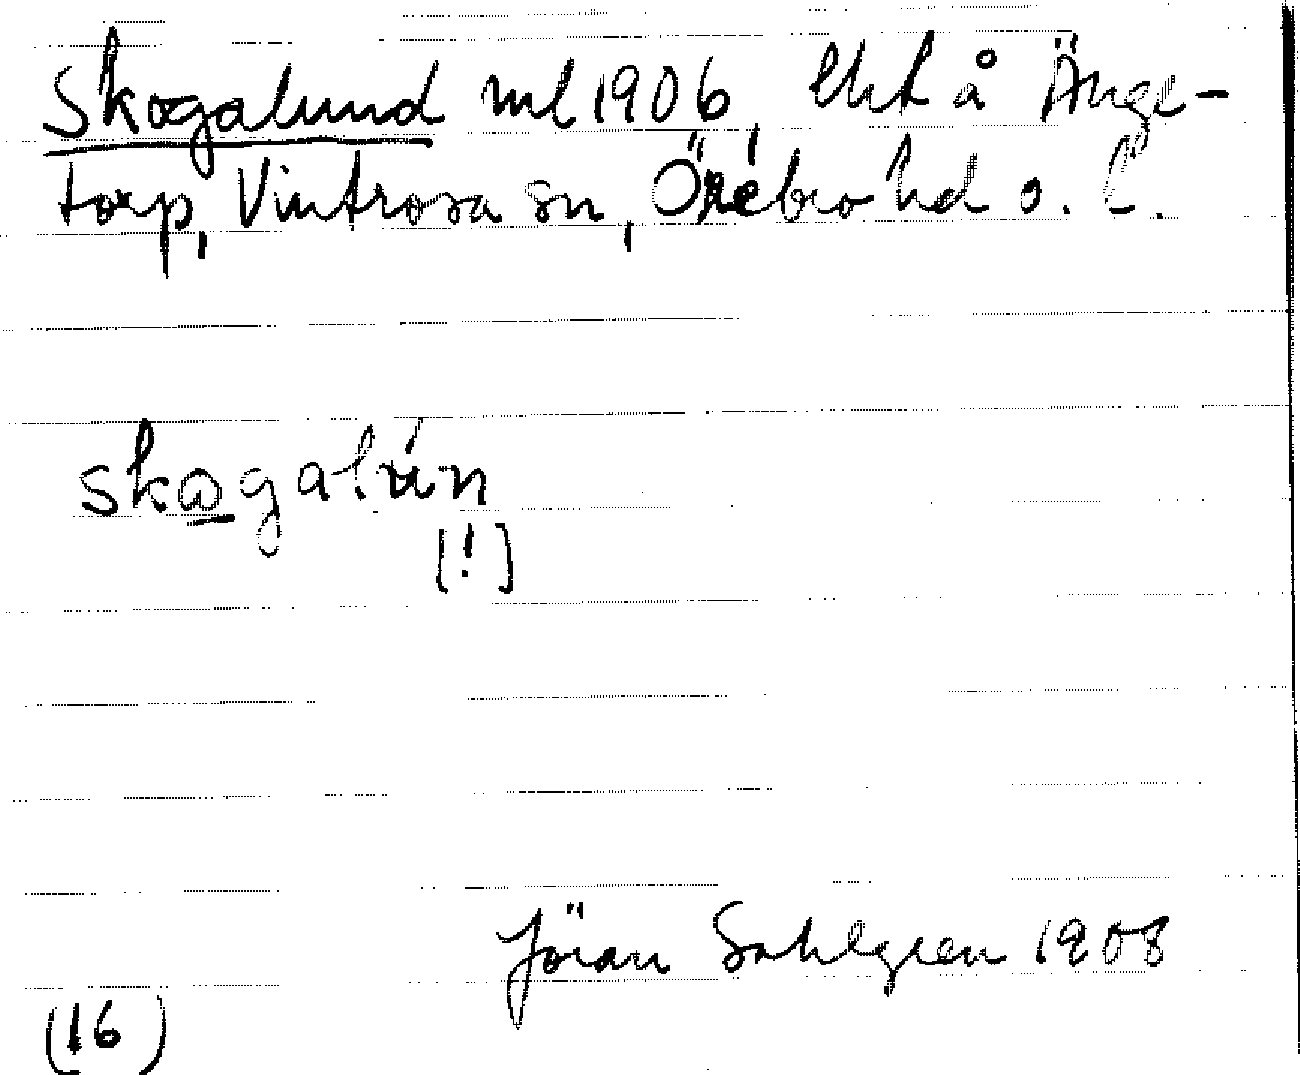 Skogalund ml 1906, lht å Änge-
torp, Vintrosa sn, Örebro hd o. L.
skogalún
[!]
Jöran Sahlgren 1908
(16)